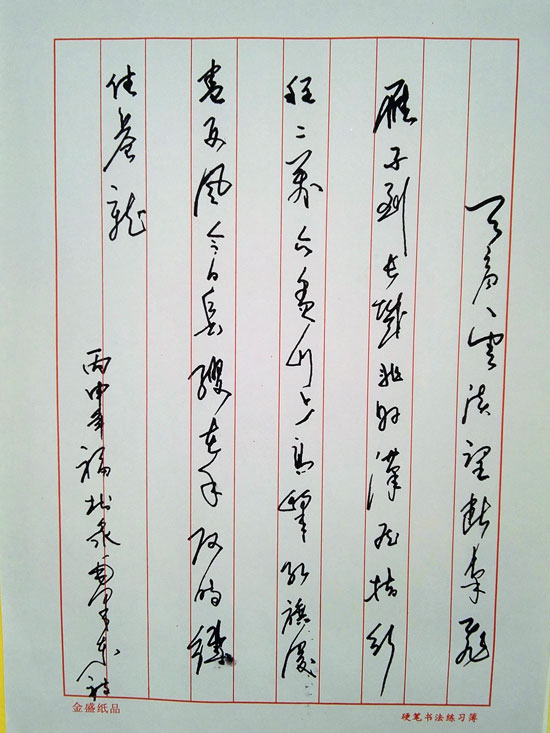 天高雲淡望断南飛
雁不到长城非好漢屈指行
程二萬六盘山上高峰红旗漫
卷西风今日长缨在手何时缚
住苍龍
丙申年福 毛泽东词
金盛纸品
硬笔书法练习簿